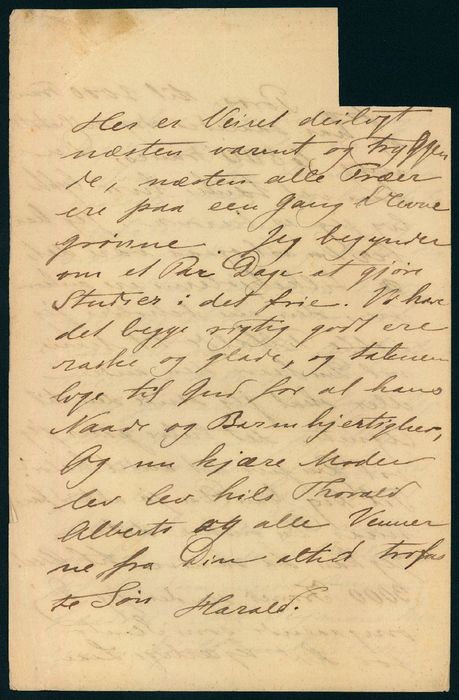 Her er Veiret deiligt
næsten varmt og trykken
de, næsten alle Træer
ere paa een Gang blevne
grønne. Jeg begynder
om et Par Dage at gjøre
Studier i det frie. Vi har
det begge rigtig godt ere
raske og glade, og taknem
lige til Gud for al hans
Naade og Barmhjertighed,
Og nu kjære Moder
lev lev hils Thorald
Alberts og alle Venner
ne fra Din altid trofas
te Søn Harald.